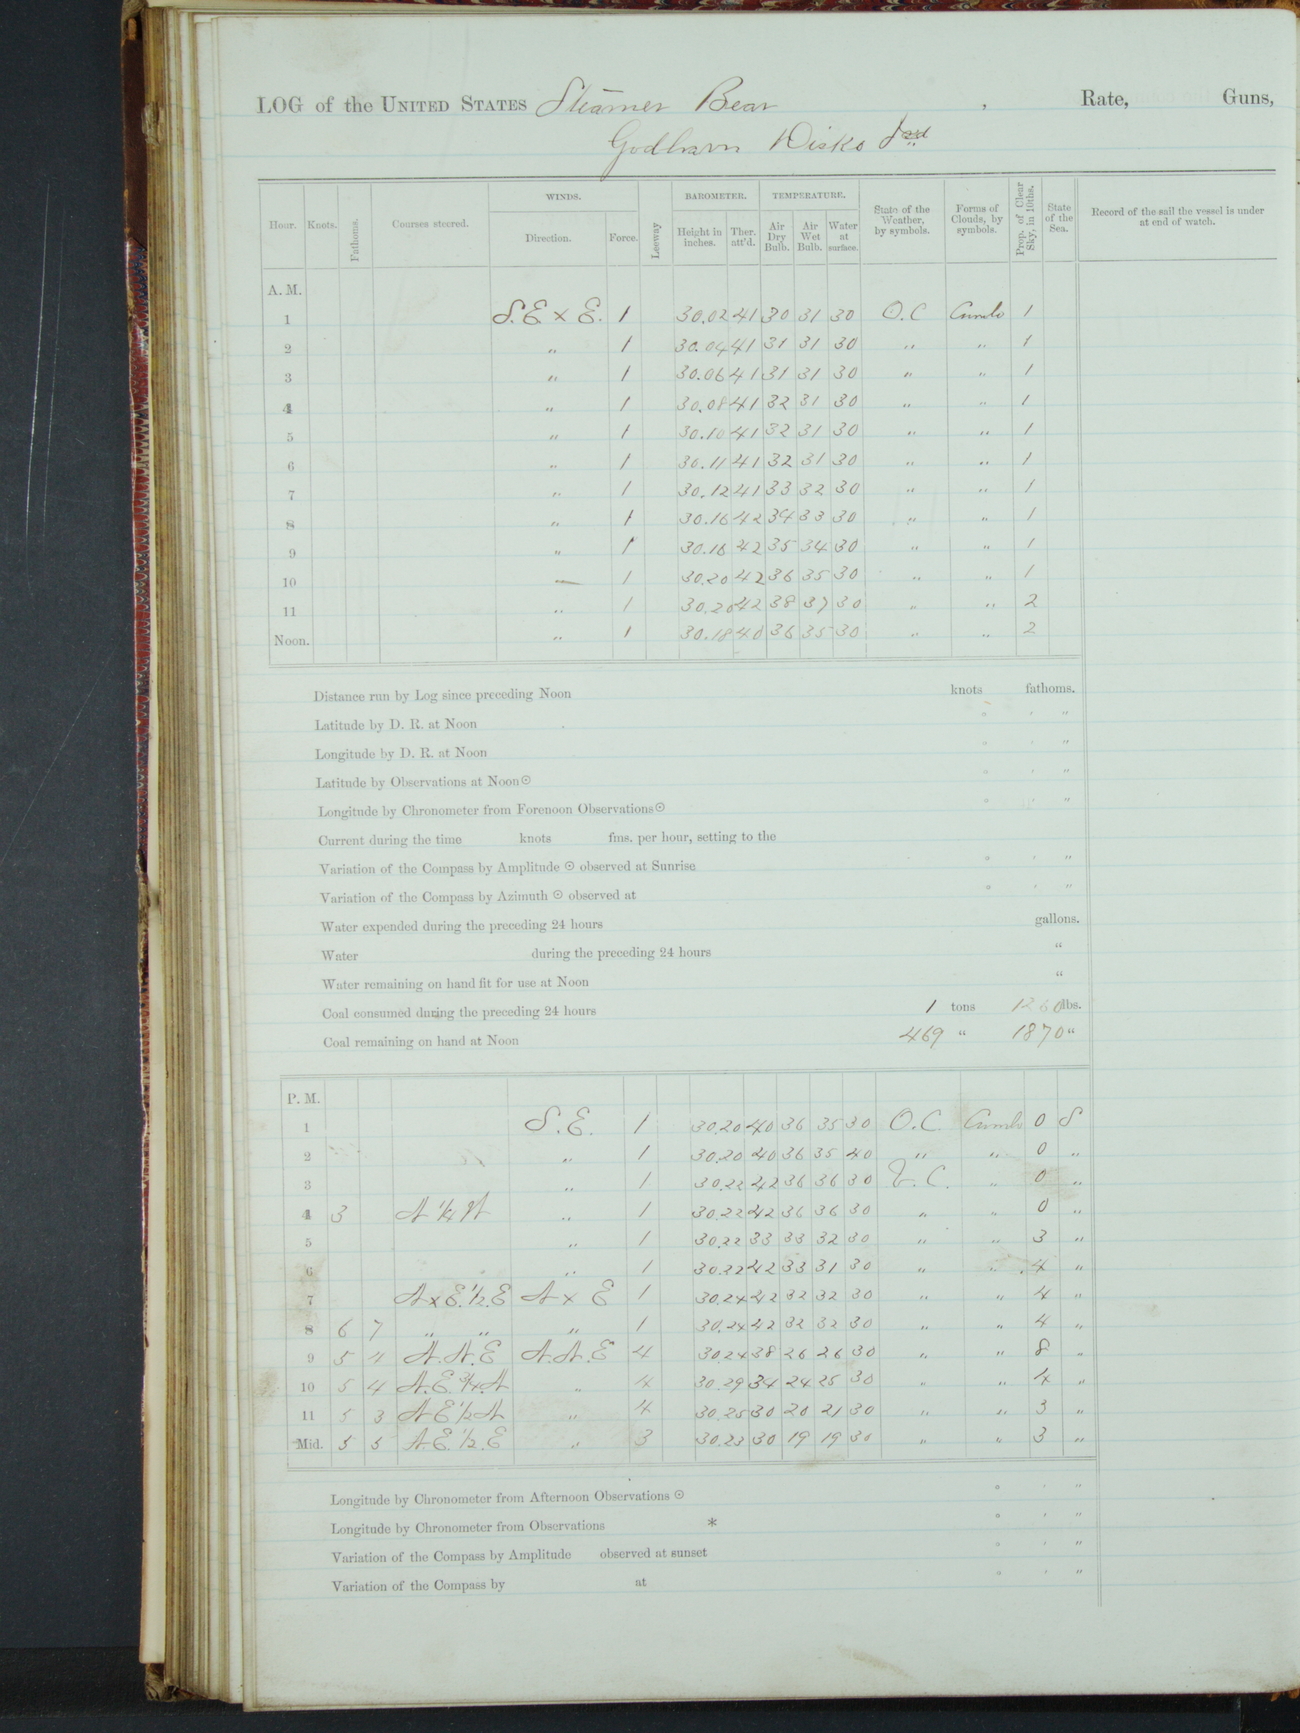 LOG of the UNITED STATES Steamer Bear , Rate, Guns,
Godhavn Disko Isd
Hour. Knots. Fathoms. Courses steered. WINDS. Direction. Force. Leeway BAROMETER. Height in inches. Ther. att'd. TEMPERATURE. Air Dry Bulb. Air Wet Bulb. Water at surface. State of the Weather, by symbols. Forms of Clouds, by symbols. Prop. of Clear Sky, in 10ths. State of the Sea. Record of the sail the vessel is under at end of watch.
A. M.
1 S.E x E. 1 30.02 41 30 31 30 O.C Cumlo 1
2 " 1 30.04 41 31 31 30 " " 1
3 " 1 30.06 41 31 31 30 " " 1
4 " 1 30.08 41 32 31 30 " " 1
5 " 1 30.10 41 32 31 30 " " 1
6 " 1 30.11 41 32 31 30 " " 1
7 " 1 30.12 41 33 32 30 " " 1
8 " 1 30.16 42 34 33 30 " " 1
9 " 1 30.18 42 35 34 30 " " 1
10 — 1 30.20 42 36 35 30 " " 1
11 " 1 30.20 42 38 37 30 " " 2
Noon. " 1 30.18 40 36 35 30 " " 2
Distance run by Log since preceding Noon knots fathoms.
Latitude by D. R. at Noon ° ' "
Longitude by D. R. at Noon ° ' "
Latitude by Observations at Noon ☉ ° ' "
Longitude by Chronometer from Forenoon Observations ☉ ° ' "
Current during the time knots fms. per hour, setting to the
Variation of the Compass by Amplitude ☉ observed at Sunrise ° ' "
Variation of the Compass by Azimuth ☉ observed at ° ' "
Water expended during the preceding 24 hours gallons.
Water during the preceding 24 hours "
Water remaining on hand fit for use at Noon "
Coal consumed during the preceding 24 hours 1 tons 1260 lbs.
Coal remaining on hand at Noon 469 " 1870 "
P. M.
1 S.E. 1 30.20 40 36 35 30 O.C. Cumlo 0 S
2 " 1 30.20 40 36 35 40 " " 0 "
3 " 1 30.22 42 36 36 30 b.C. " 0 "
4 3 N ¼ W " 1 30.22 42 36 36 30 " " 0 "
5 " 1 30.22 33 33 32 30 " " 3 "
6 " 1 30.22 42 33 31 30 " " 4 "
7 N x E. ½. E N x E 1 30.24 42 32 32 30 " " 4 "
8 6 7 " " " 1 30.24 42 32 32 30 " " 4 "
9 5 4 N.N.E N.N.E 4 30.24 38 26 26 30 " " 8 "
10 5 4 N.E. ¾. N " 4 30.29 34 24 25 30 " " 4 "
11 5 3 N E ½ N " 4 30.25 30 20 21 30 " " 3 "
Mid. 5 5 N.E. ½. E " 3 30.23 30 19 19 30 " " 3 "
Longitude by Chronometer from Afternoon Observations ☉ ° ' "
Longitude by Chronometer from Observations * ° ' "
Variation of the Compass by Amplitude observed at sunset ° ' "
Variation of the Compass by at ° ' "